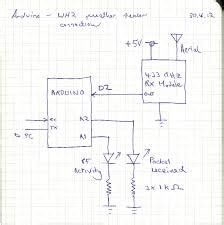 Arduino - WH2 weather sensor
connection
30.4.12
+5V
Aerial
433 MHz
Rx Module
ARDUINO
D2
TX
A2
A1
PC
RF
Activity
Packet
received
2 x 1k Ω